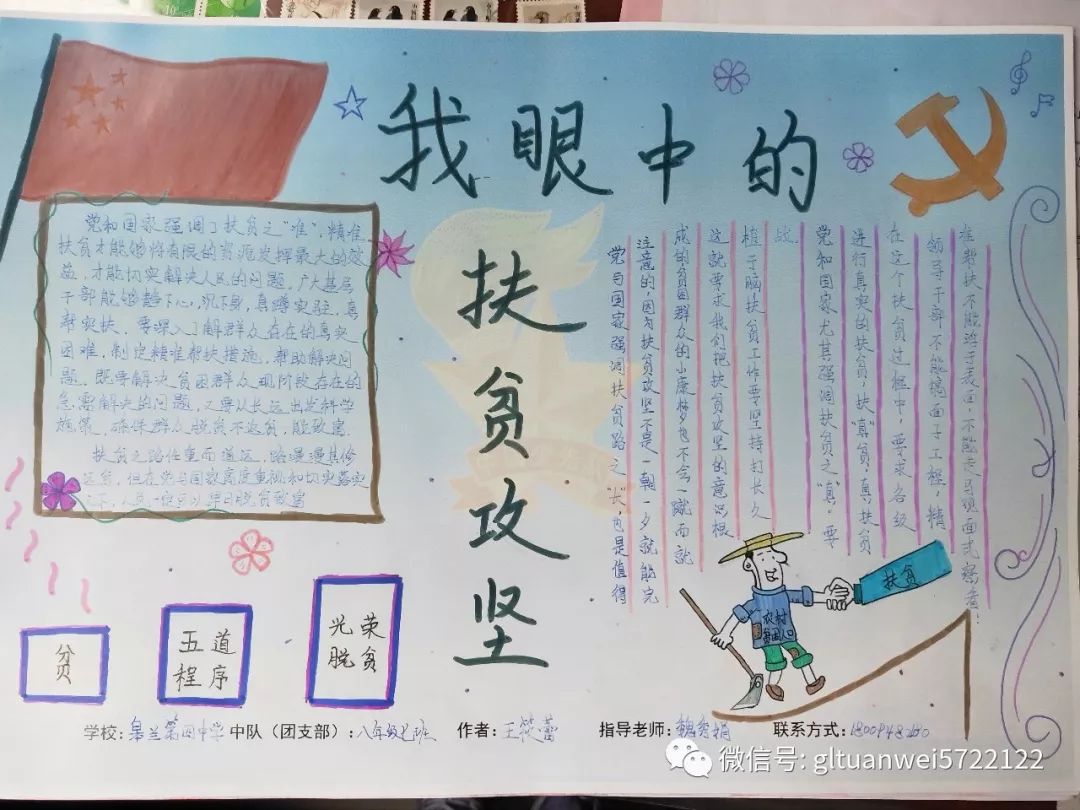 我眼中的
扶贫攻坚
党和国家强调了扶贫之"准",精准
扶贫才能够将有限的资源发挥最大的效
益,才能切实解决人民的问题,广大基层
干部能够静下心,沉下身,真蹲实驻,真
帮实扶,要深入了解群众存在的真实
困难,制定精准帮扶措施,帮助解决问
题。既要解决贫困群众现阶段存在的
急需解决的问题,又要从长远出发科学
施策,确保群众脱贫不返贫,能致富。
扶贫之路任重而道远,路漫漫其修
远兮,但在党与国家高度重视和切实落实
之下,人民一定可以早日脱贫致富
党与国家强调扶贫路之"长",也是值得
注意的,因为扶贫攻坚不是一朝一夕就能完
成的贫困群众的小康梦也不会一蹴而就
这就要求我们把扶贫攻坚的意识根
植于脑扶贫工作要坚持打长久
战。
党和国家尤其强调扶贫之"真",要
进行真实的扶贫,扶"真"贫,真扶贫
在这个扶贫过程中,要求各级
领导干部不能搞面子工程,精
准帮扶不能浮于表面,不能走马观
扶贫
农村
贫困人口
贫
五道
程序
光荣
脱贫
学校:皋兰第四中学 中队(团支部):八年级七班 作者:王筱蕾 指导老师: 联系方式:
微信号: gltuanwei5722122